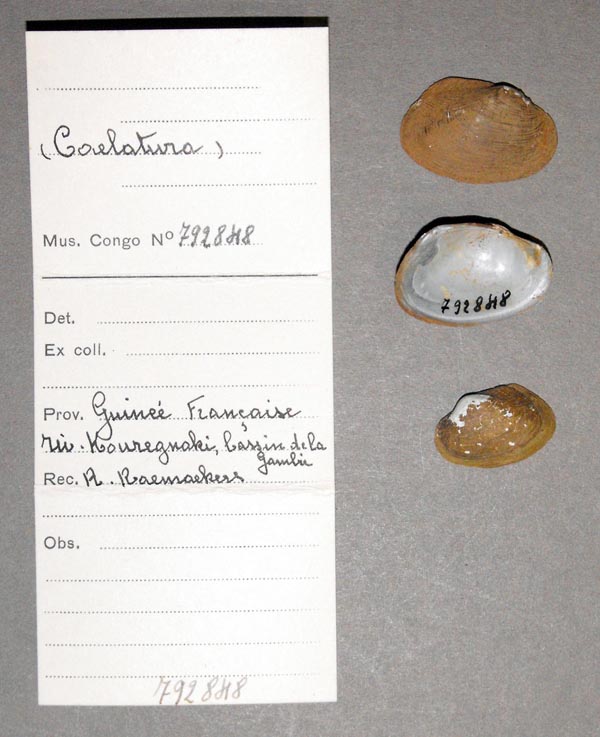 (Coelatura)
Mus. Congo Nº 792848
Det.
Ex coll.
Prov. Guineé Française
riv. Kouregnaki, bassin de la
Gambie
Rec. R. Raemaekers
Obs.
792848
792848